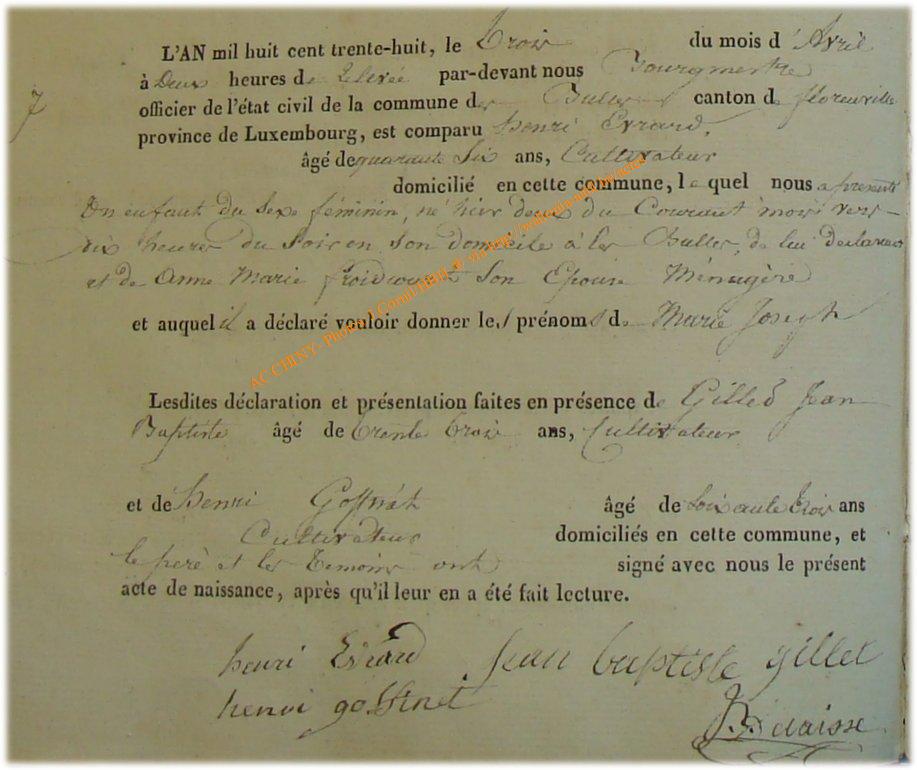 L'AN mil huit cent trente-huit, le trois du mois d'Avril
à Deux heures de Relevée par-devant nous Bourgmestre
officier de l'état civil de la commune des Bulles canton de florenville
7
province de Luxembourg, est comparu henri Evrard,
âgé de quarante Six ans, Cultivateur
domicilié en cette commune, le quel nous a présenté
Un enfant du Sexe féminin, né hier deux du Courant mois vers
six heures du Soir en Son domicile à les Bulles, de lui déclarant
et de Anne Marie froidcourt Son Epouse Ménagère
et auquel il a déclaré vouloir donner les prénoms de Marie Joseph
AC CHINY- Photo
Lesdites déclaration et présentation faites en présence de Gillet Jean
Baptiste âgé de trente trois ans, Cultivateur
et de henri Goffinet âgé de Soixante trois ans
Cultivateur domiciliés en cette commune, et
le père et les temoins ont signé avec nous le présent
acte de naissance, après qu'il leur en a été fait lecture.
henri Evrard Jean baptiste gillet
henri goffinet